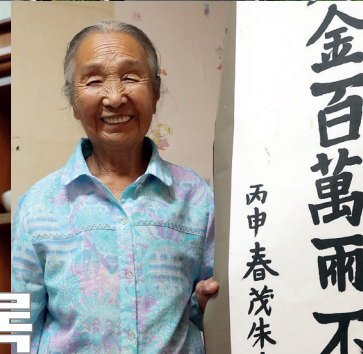 金百萬兩不
丙申春茂朱